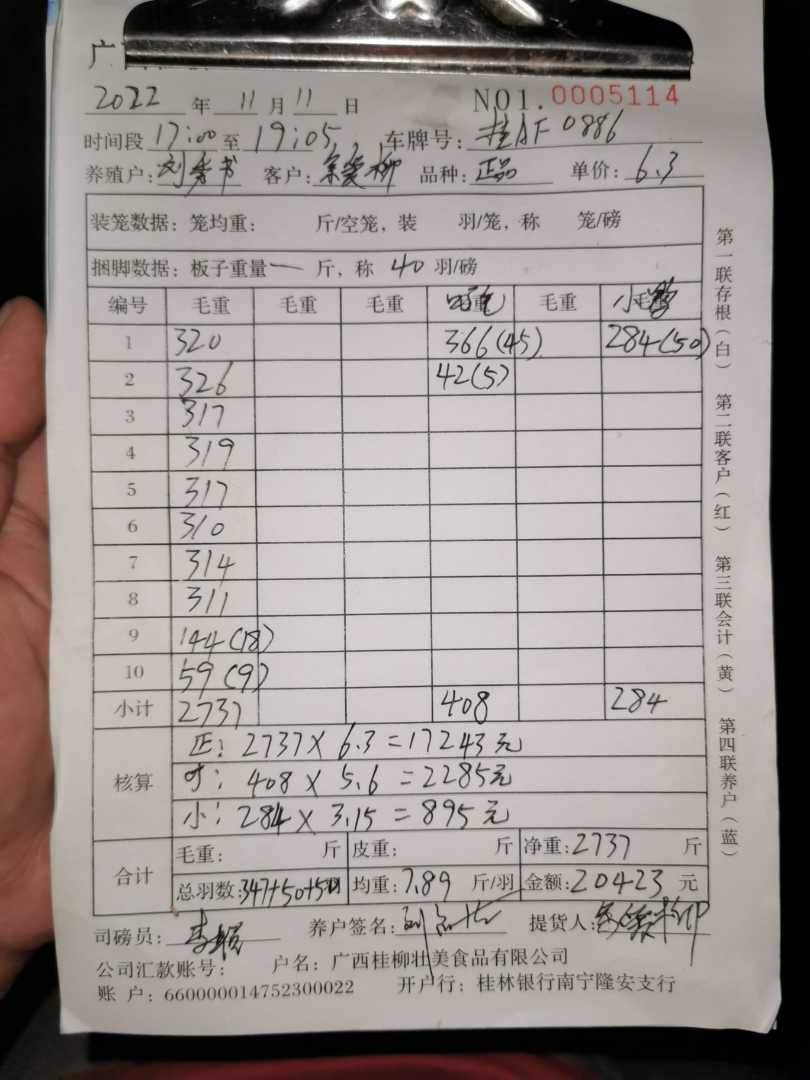 广西
2022 年 11 月 11 日 NO1. 0005114
时间段 17:00 至 19:05 车牌号: 桂AF0886
养殖户: 刘 书 客户: 柳 品种: 正品 单价: 6.3
装笼数据: 笼均重: 斤/空笼, 装 羽/笼, 称 笼/磅
捆脚数据: 板子重量 一 斤, 称 40 羽/磅
编号 毛重 毛重 毛重 毛重 小
1 320 366(45) 284(50)
2 326 42(5)
3 317
4 319
5 317
6 310
7 314
8 311
9 144(18)
10 59(9)
小计 2737 408 284
核算
正: 2737 X 6.3 = 17243元
408 X 5.6 = 2285元
小: 284 X 3.15 = 895元
合计
毛重: 斤 皮重: 斤 净重: 2737 斤
总羽数: 347+50+50 均重: 7.89 斤/羽 金额: 20423 元
司磅员: 李 养户签名: 刘 提货人: 柳
公司汇款账号: 户名: 广西桂柳壮美食品有限公司
账 户: 660000014752300022 开户行: 桂林银行南宁隆安支行
第一联存根(白) 第二联客户(红) 第三联会计(黄) 第四联养户(蓝)